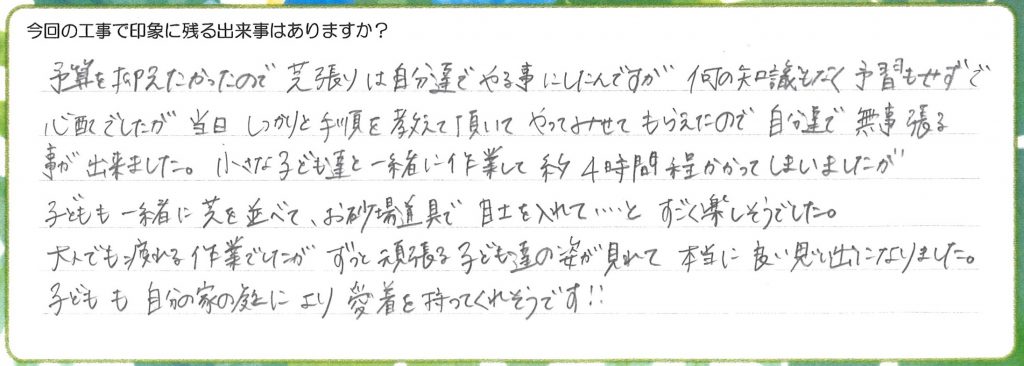 今回の工事で印象に残る出来事はありますか？
予算を抑えたかったので 芝張りは自分達でやる事にしたんですが 何の知識もなく予習もせずで
心配でしたが 当日 しっかりと手順を教えて頂いて やってみせてもらえたので 自分達で無事張る
事が出来ました。小さな子ども達と一緒に作業して 約4時間程かかってしまいましたが
子どもも一緒に芝を並べて、お砂場道具で 目土を入れて‥‥と すごく楽しそうでした。
大人でも疲れる作業でしたが ずっと頑張る子ども達の姿が見れて 本当に良い思い出になりました。
子どもも 自分の家の庭により 愛着を持ってくれそうです!!